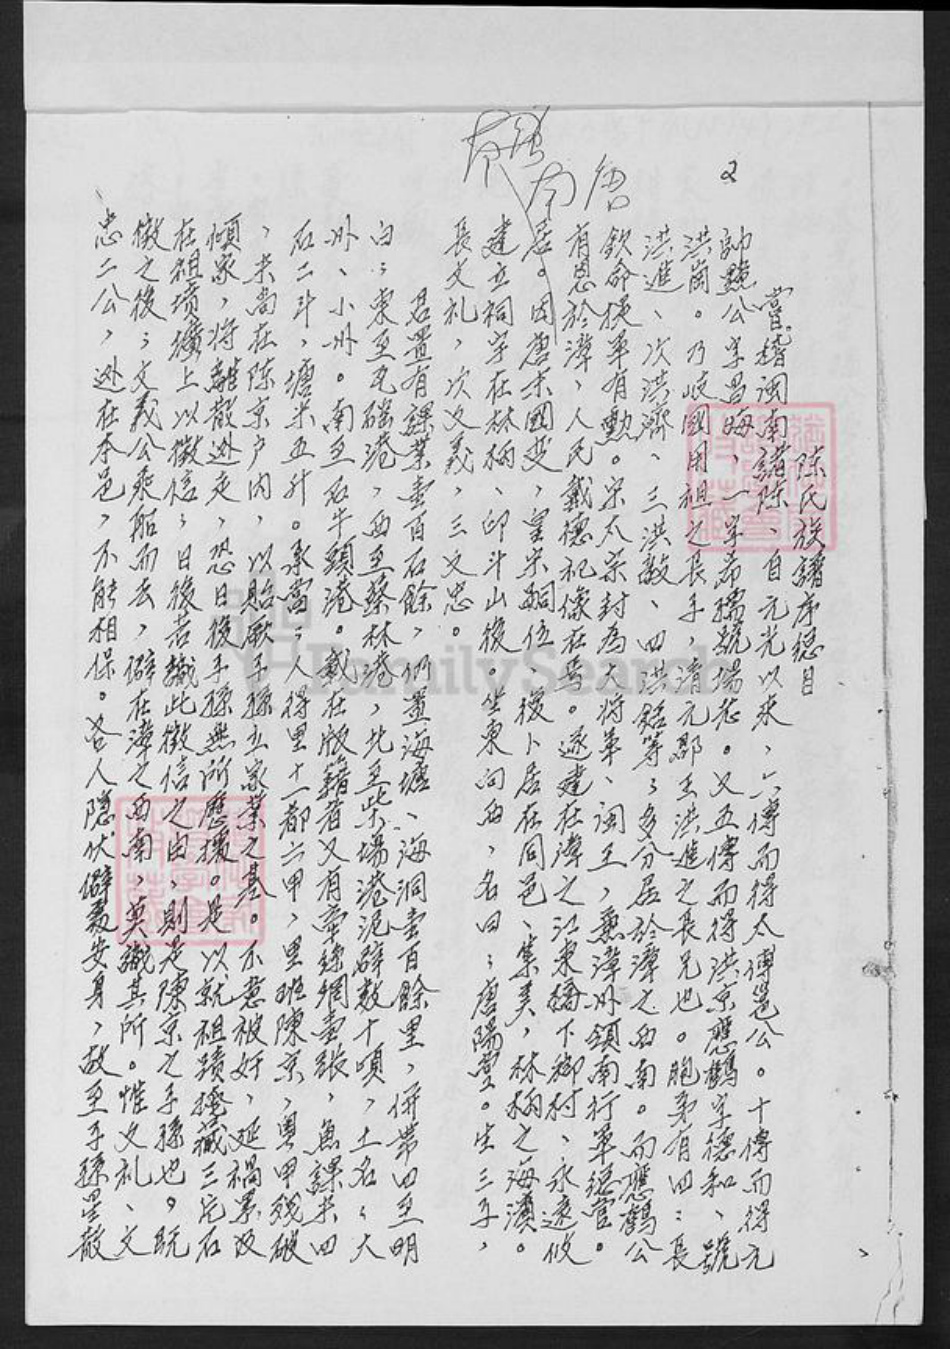 2
南唐
陳氏族譜序總目
嘗稽閩南諸陳、自元光以來、六傳而得太傅邕公。十傳而得元
帥魏公字昌晦、一字希孺號場老。又五傳而得洪京應鶴字德和、號
洪崗。乃岐國用祖之長子，清元郡王洪進之長兄也。胞弟有四：長
洪進、次洪濟、三洪敏、四洪銘等；多分居於漳之西南。而應鶴公
欽命提軍有勳。宋太宗封為大將軍、閩王，兼漳州領南行軍總管。
有恩於漳，人民戴德祀像在焉。遂建在漳之江東橋下鄉村、永遠攸
居。因唐末國变，皇宋嗣位。後卜居在同邑、集美，林柄之海濱。
建立祠宇在林柄、印斗山後。坐東向西，名曰：唐陽堂。生三子，
長文礼，次文義，三文忠。
君置有課業壹百石餘，仍置海壇、海洞壹百餘里，併帶四至明
白：東至瓦磘港，西至蔡林港，北至柴場港泥辟数十頃，土名：大
洲、小州。南至石牛頭港。載在版籍者又有牽綠網壹張，魚課米四
石二斗，塘米五升。承當：人得里十一都六甲，里班陳京，男甲残破
，米尚在陳京户內，以貽厥子孫立家業之基。不意被奸，延禍累及
傾家，将離散逊走，恐日後子孫無所憑據。是以就祖蹟掩藏三完石
在祖墳壙上以徵信；日後若識此徵信之由，則是陳京之子孫也。既
徵之後；文義公乘船而去，僻在漳之西南，莫識其所。惟文礼、文
忠二公，逊在本邑，不能相保。各人隱伏僻處安身，故至子孫星散
FamilySearch